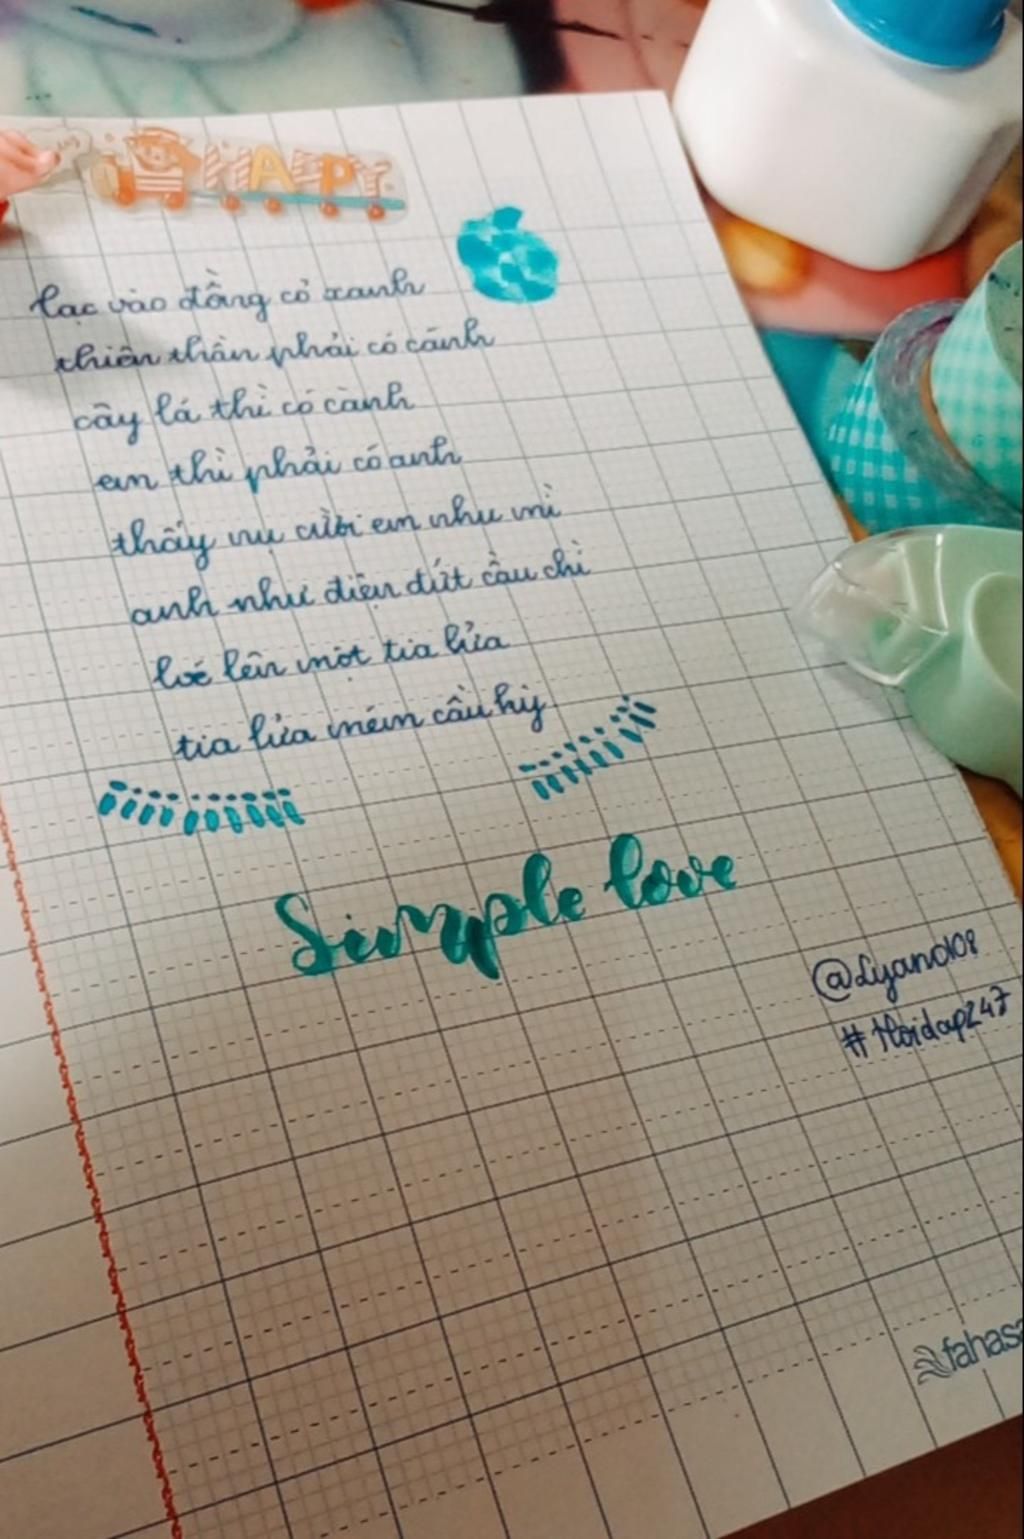 HAPPY
lạc vào đồng cỏ xanh
thiên thần phải có cánh
cây lá thì có cành
em thì phải có anh
thấy nụ cười em nhu mì
anh như điện đứt cầu chì
loé lên một tia lửa
tia lửa mém cầu hỳ
Simple love
@Lyano108
#Hoidap247
fahasa